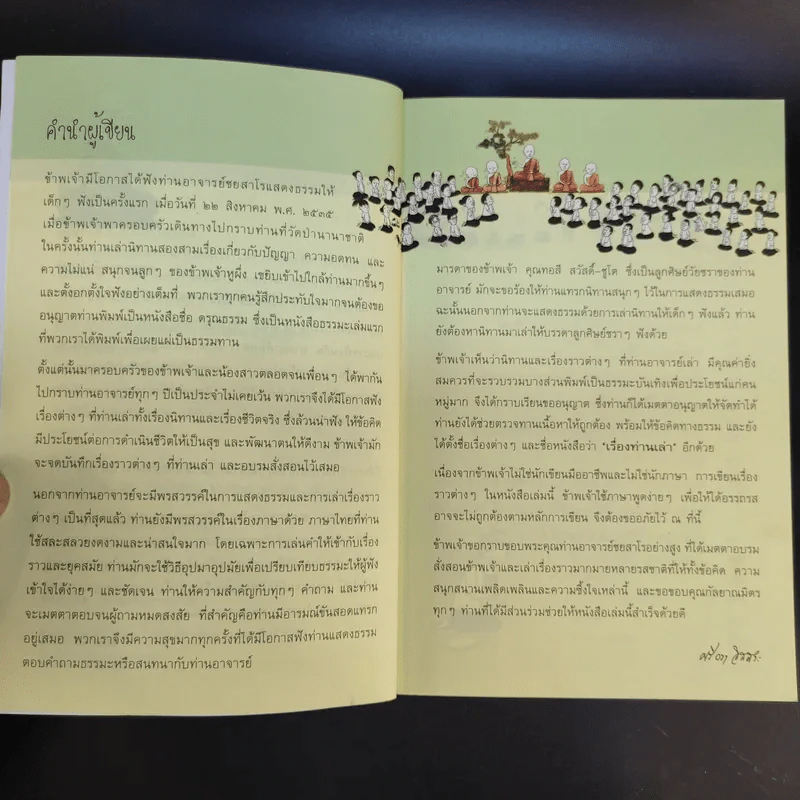 คำนำผู้เขียน
ข้าพเจ้ามีโอกาสได้ฟังท่านอาจารย์ชยสาโรแสดงธรรมให้
เด็กๆ ฟังเป็นครั้งแรก เมื่อวันที่ ๒๒ สิงหาคม พ.ศ. ๒๕๓๕
เมื่อข้าพเจ้าพาครอบครัวเดินทางไปกราบท่านที่วัดป่านานาชาติ
ในครั้งนั้นท่านเล่านิทานสองสามเรื่องเกี่ยวกับปัญญา ความอดทน และ
ความไม่แน่ สนุกจนลูกๆ ของข้าพเจ้าหูผึ่ง เขยิบเข้าไปใกล้ท่านมากขึ้นๆ
และตั้งอกตั้งใจฟังอย่างเต็มที่ พวกเราทุกคนรู้สึกประทับใจมากจนต้องขอ
อนุญาตท่านพิมพ์เป็นหนังสือชื่อ ดรุณธรรม ซึ่งเป็นหนังสือธรรมะเล่มแรก
ที่พวกเราได้พิมพ์เพื่อเผยแผ่เป็นธรรมทาน
ตั้งแต่นั้นมาครอบครัวของข้าพเจ้าและน้องสาวตลอดจนเพื่อนๆ ได้พากัน
ไปกราบท่านอาจารย์ทุกๆ ปีเป็นประจำไม่เคยเว้น พวกเราจึงได้มีโอกาสฟัง
เรื่องต่างๆ ที่ท่านเล่าทั้งเรื่องนิทานและเรื่องชีวิตจริง ซึ่งล้วนน่าฟัง ให้ข้อคิด
มีประโยชน์ต่อการดำเนินชีวิตให้เป็นสุข และพัฒนาตนให้ดีงาม ข้าพเจ้ามัก
จะจดบันทึกเรื่องราวต่างๆ ที่ท่านเล่า และอบรมสั่งสอนไว้เสมอ
นอกจากท่านอาจารย์จะมีพรสวรรค์ในการแสดงธรรมและการเล่าเรื่องราว
ต่างๆ เป็นที่สุดแล้ว ท่านยังมีพรสวรรค์ในเรื่องภาษาด้วย ภาษาไทยที่ท่าน
ใช้สละสลวยงดงามและน่าสนใจมาก โดยเฉพาะการเล่นคำให้เข้ากับเรื่อง
ราวและยุคสมัย ท่านมักจะใช้วิธีอุปมาอุปมัยเพื่อเปรียบเทียบธรรมะให้ผู้ฟัง
เข้าใจได้ง่ายๆ และชัดเจน ท่านให้ความสำคัญกับทุกๆ คำถาม และท่าน
จะเมตตาตอบจนผู้ถามหมดสงสัย ที่สำคัญคือท่านมีอารมณ์ขันสอดแทรก
อยู่เสมอ พวกเราจึงมีความสุขมากทุกครั้งที่ได้มีโอกาสฟังท่านแสดงธรรม
ตอบคำถามธรรมะหรือสนทนากับท่านอาจารย์
มารดาของข้าพเจ้า คุณทอสี สวัสดิ์-ชูโต ซึ่งเป็นลูกศิษย์วัยชราของท่าน
อาจารย์ มักจะขอร้องให้ท่านแทรกนิทานสนุกๆ ไว้ในการแสดงธรรมเสมอ
ฉะนั้นนอกจากท่านจะแสดงธรรมด้วยการเล่านิทานให้เด็กๆ ฟังแล้ว ท่าน
ยังต้องหานิทานมาเล่าให้บรรดาลูกศิษย์ชราๆ ฟังด้วย
ข้าพเจ้าเห็นว่านิทานและเรื่องราวต่างๆ ที่ท่านอาจารย์เล่า มีคุณค่ายิ่ง
สมควรที่จะรวบรวมบางส่วนพิมพ์เป็นธรรมะบันเทิงเพื่อประโยชน์แก่คน
หมู่มาก จึงได้กราบเรียนขออนุญาต ซึ่งท่านก็ได้เมตตาอนุญาตให้จัดทำได้
ท่านยังได้ช่วยตรวจทานเนื้อหาให้ถูกต้อง พร้อมให้ข้อคิดทางธรรม และยัง
ได้ตั้งชื่อเรื่องต่างๆ และชื่อหนังสือว่า "เรื่องท่านเล่า" อีกด้วย
เนื่องจากข้าพเจ้าไม่ใช่นักเขียนมืออาชีพและไม่ใช่นักภาษา การเขียนเรื่อง
ราวต่างๆ ในหนังสือเล่มนี้ ข้าพเจ้าใช้ภาษาพูดง่ายๆ เพื่อให้ได้อรรถรส
อาจจะไม่ถูกต้องตามหลักการเขียน จึงต้องขออภัยไว้ ณ ที่นี้
ข้าพเจ้าขอกราบขอบพระคุณท่านอาจารย์ชยสาโรอย่างสูง ที่ได้เมตตาอบรม
สั่งสอนข้าพเจ้าและเล่าเรื่องราวมากมายหลายรสชาติที่ให้ทั้งข้อคิด ความ
สนุกสนานเพลิดเพลินและความซึ้งใจเหล่านี้ และขอขอบคุณกัลยาณมิตร
ทุกๆ ท่านที่ได้มีส่วนร่วมช่วยให้หนังสือเล่มนี้สำเร็จด้วยดี